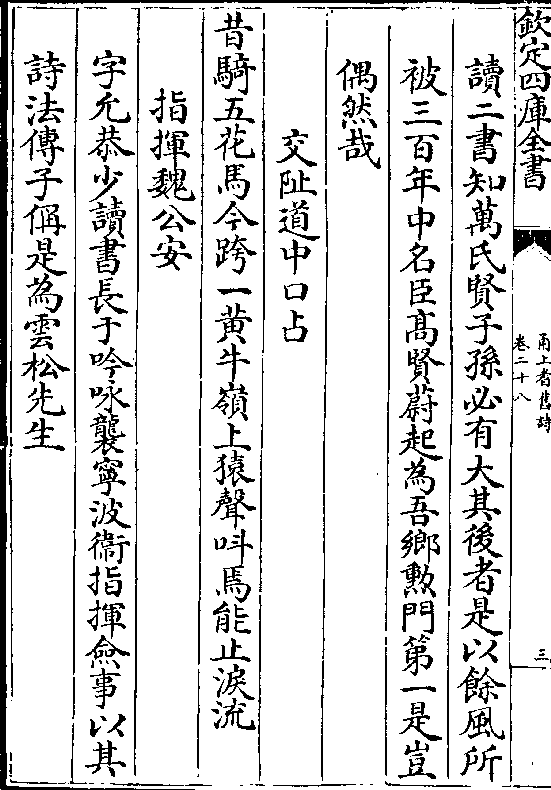 欽定四庫全書
甬上耆舊詩
卷二十八
三
讀二書知萬氏賢子孫必有大其後者是以餘風所
被三百年中名臣髙賢蔚起為吾鄉勲門第一是豈
偶然哉
交阯道中口占
昔騎五花馬今跨一黄牛嶺上猿聲呌焉能止淚流
指揮魏公安
字允恭少讀書長于吟咏襲寧波衞指揮僉事以其
詩法傳子偁是為雲松先生